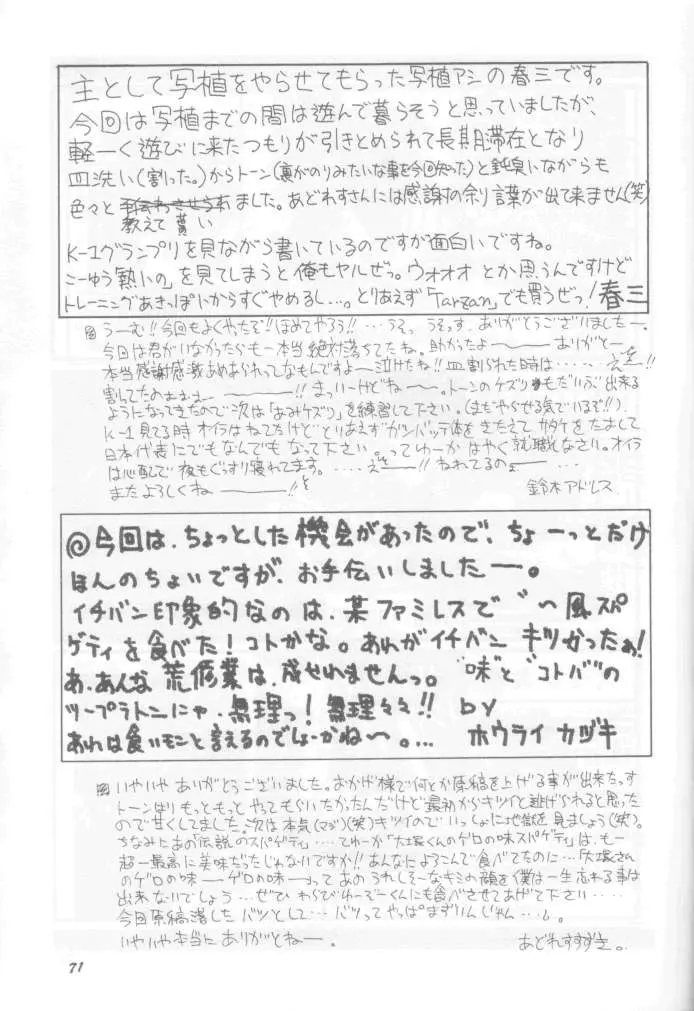 主として写植をやらせてもらった写植アシの春三です。
今回は写植までの間は遊んで暮らそうと思っていましたが、
軽ーく遊びに来たつもりが引きとめられて長期滞在となり
皿洗い(割った。)からトーン(裏がのりみたいな事を今回知った)と鈍臭いながらも
色々と教えて貰いました。あどれすさんには感謝の余り言葉が出て来ません(笑)
K-1グランプリを見ながら書いているのですが面白いですね。
こーゆう「熱いの」を見てしまうと俺もヤルぜっ。ウォオオ とか思うんですけど
トレーニングあきっぽいからすぐやめるし…。とりあえず「Tarzan」でも買うぜっ! 春三
うーむ!!今回もよくやったぞ!!ほめてやろう!!…うそっ うそっす。ありがとうございましたー。
今回は君がいなかったらもー本当絶対落ちてたね。助かったよー ありがとー
本当感謝感激あめあられってなもんですよー泣けたね!!皿割られた時は……
割してたのぉぉぉ ――!! まっいーけどねー。トーンのケズリもだいぶ出来る
ようになってきたので次は「あみケズリ」を練習して下さい。(まだやらせる気でいるぞ!!)
K-1見てる時オイラはねてたけどとりあえずガンバッテ体をきたえてサタケをたおして
日本代表にでもなんでもなって下さい。……ってゆーかはやく就職しなさい。オイラ
は心配で夜もぐっすり寝れてます。……え――!!ねれてるのぉー…
またよろしくねー――!!
鈴木アドレス
◎今回は、ちょっとした機会があったので、ちょーっとだけ
ほんのちょいですが、お手伝いしましたー。
イチバン印象的なのは、某ファミレスで゛〜風スパ
ゲティを食べた!コトかな。あれがイチバン キツかったぁ!
あ、あんな荒修業は、成せれませんっ。"味"と"コトバ"の
ツープラトンにゃ、無理っ!無理々々!! by
あれは食いモンと言えるのでしょーかね〜。… ホウライ カヅキ
いやいやありがとうございました。おかげ様で何とか原稿を上げる事が出来たっす
トーンはりもっともっとやってもらいたかったんだけど最初からキツイと逃げられると思った
ので甘くしてました。次は本気(マジ)(笑)キツイのでいっしょに地獄を見ましょう(笑)。
ちなみにあの伝説のスパゲティ……てゆーか「大塚くんのゲロの味スパゲティ」は、もー
超ー最高に美味だったじゃないですか!!あんなによろこんで食べてたのに…「大塚さん
のゲロの味――ゲロの味――」ってあのうれしそーなキミの顔を僕は一生忘れる事は
出来ないでしょう…ぜひわらびゆーぞーくんにも食べさせてあげて下さい……
今回原稿落したバツとして…バツってやっぱまずいんじゃん…。
いやいや本当にありがとねー。 あどれすすずき。
71